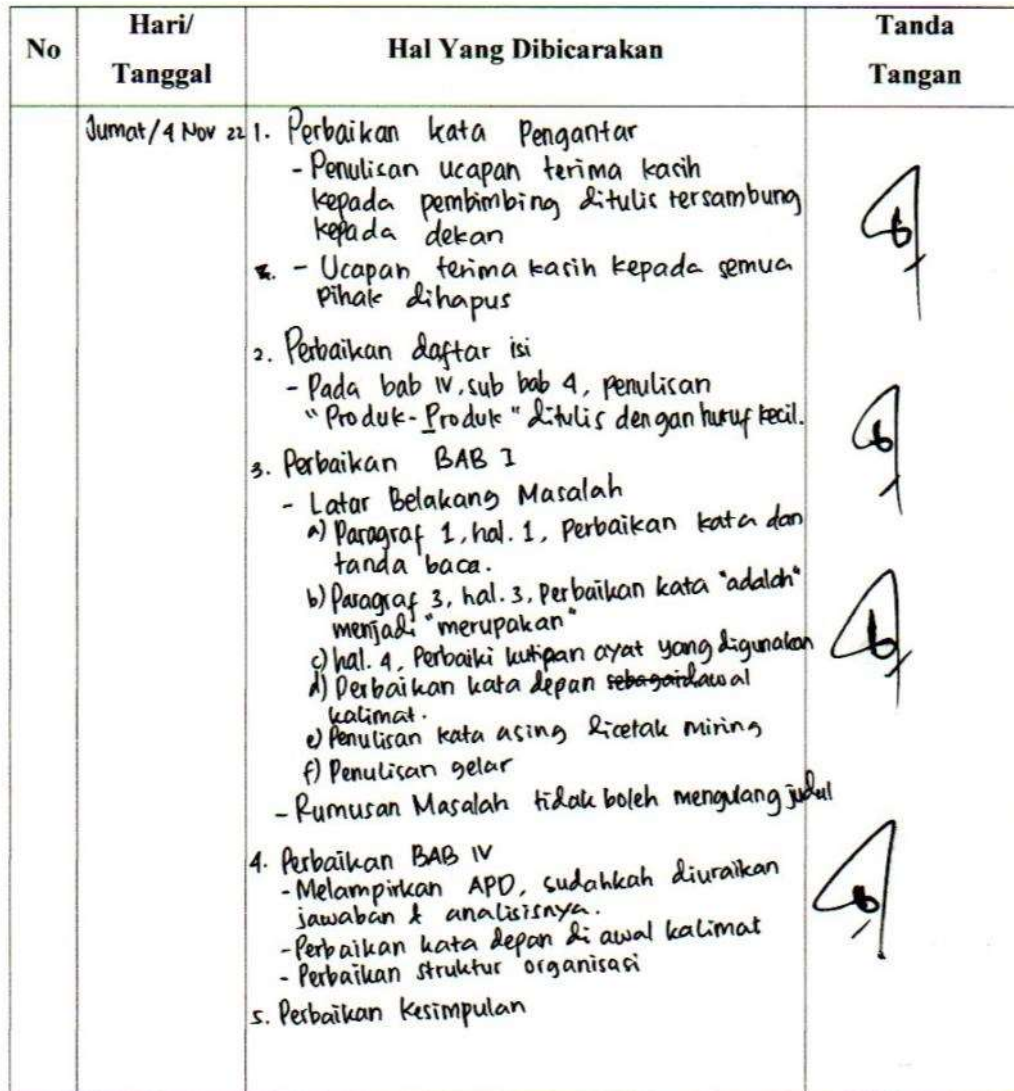 No
Hari/
Tanggal
Hal Yang Dibicarakan
Tanda
Tangan
Jumat/4 Nov 22
1. Perbaikan kata Pengantar
- Penulisan ucapan terima kasih
kepada pembimbing ditulis tersambung
kepada dekan
- Ucapan terima kasih kepada semua
Pihak dihapus
2. Perbaikan daftar isi
- Pada bab IV, sub bab 4, penulisan
"Produk-Produk" ditulis dengan huruf kecil.
3. Perbaikan BAB I
- Latar Belakang Masalah
a) Paragraf 1, hal. 1, Perbaikan kata dan
tanda baca.
b) Paragraf 3, hal. 3, Perbaikan kata "adalah"
menjadi "merupakan"
c) hal. 4, Perbaiki kutipan ayat yang digunakan
d) Perbaikan kata depan sebagai diawal
kalimat.
e) Penulisan kata asing dicetak miring
f) Penulisan gelar
- Rumusan Masalah tidak boleh mengulang judul
4. Perbaikan BAB IV
- Melampirkan APD, sudahkah diuraikan
jawaban & analisisnya.
- Perbaikan kata depan di awal kalimat
- Perbaikan struktur organisasi
5. Perbaikan Kesimpulan